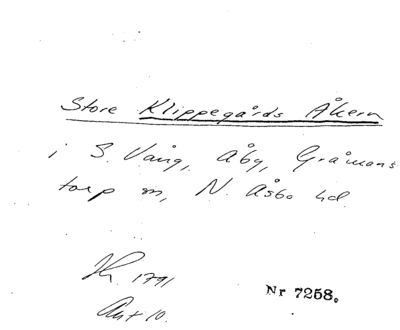 Store Klippegårds Åkern
i S. Vång, Åby, Gråmans
torp sn, N. Åsbo hd.
1791
Akt 10.
Nr 7258.